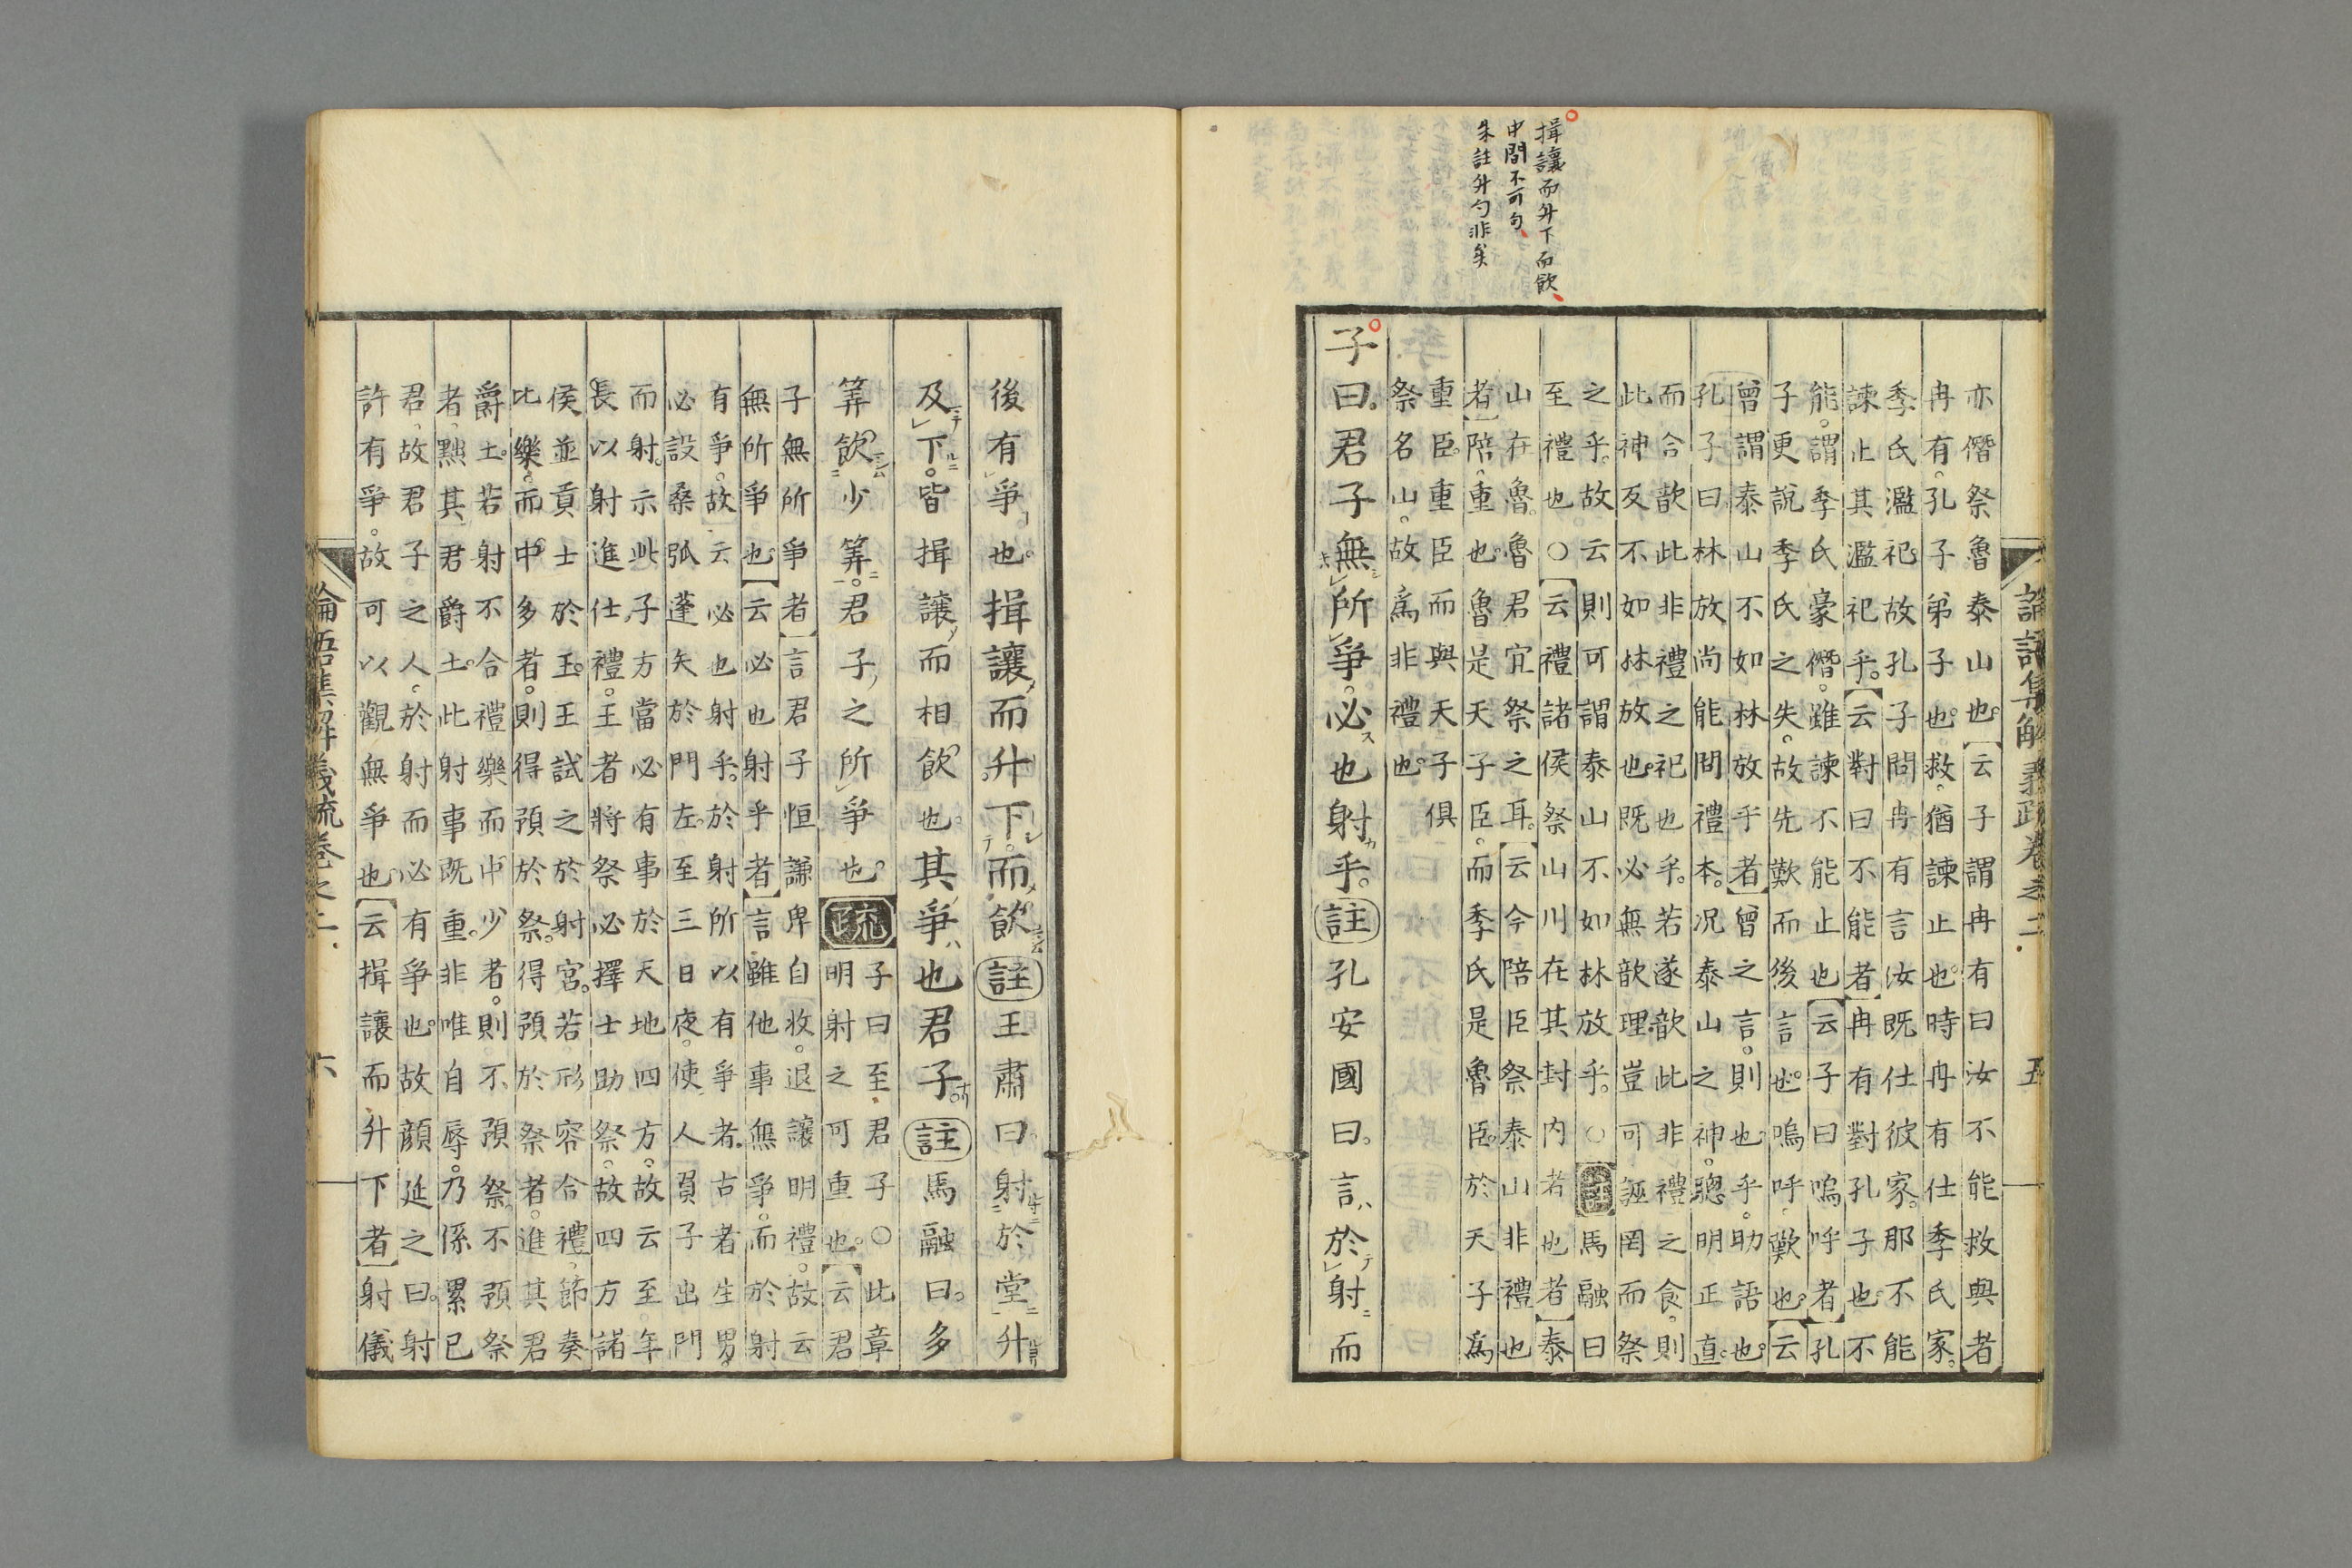 揖讓而升下而飲
中間不可句
朱註升勺非矣
亦僭祭魯泰山也云子謂冉有曰汝不能救與者
冉有孔子弟子也救猶諫止也時冉有仕季氏家
季氏濫祀故孔子問冉有言汝既仕彼家那不能
諫止其濫祀乎云對曰不能者冉有對孔子也不
能謂季氏豪僭雖諫不能止也云子曰嗚呼者孔
子更說季氏之失故先歎而後言也嗚呼歎也云
曾謂泰山不如林放乎者曾之言則也乎助語也
孔子曰林放尚能問禮本况泰山之神聰明正直
而合歆此非禮之祀也乎若遂歆此非禮之食則
此神反不如林放也既必無歆理豈可誣罔而祭
之乎故云則可謂泰山不如林放乎○馬融曰
至禮也○云禮諸侯祭山川在其封内者也者泰
山在魯魯君宜祭之耳云今陪臣祭泰山非禮也
者陪重也魯是天子臣而季氏是魯臣於天子爲
重臣重臣而與天子俱
祭名山故爲非禮也
子曰君子無所爭必也射乎註孔安國曰言於射而
論語集解義疏卷之二 五
後有爭也揖讓而升下而飲註王肅曰射於堂升
及下皆揖讓而相飲也其爭也君子註馬融曰多
筭飲少筭君子之所爭也疏子曰至君子○此章
明射之可重也云君
子無所爭者言君子恒謙卑自收退讓明禮故云
無所爭也云必也射乎者言雖他事無爭而於射
有爭故云必也射乎於射所以有爭者古者生男
必設桑弧蓬矢於門左至三日夜使人負子出門
而射示此子方當必有事於天地四方故云至年
長以射進仕禮王者將祭必擇士助祭故四方諸
侯並貢士於王王試之於射宮若形容合禮節奏
比樂而中多者則得預於祭得預於祭者進其君
爵土若射不合禮樂而中少者則不預祭不預祭
者黜其君爵土此射事既重非唯自辱乃係累已
君故君子之人於射而必有爭也故顔延之曰射
許有爭故可以觀無爭也云揖讓而升下者射儀
論語集解義疏卷之二 六